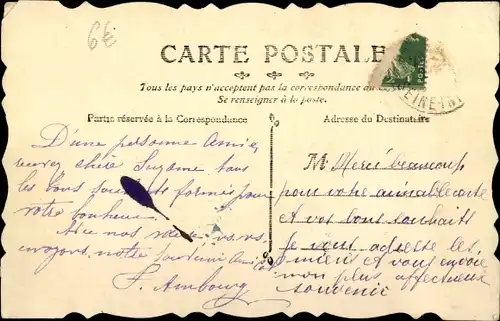 6€
CARTE POSTALE
Tous les pays n'acceptent pas la correspondance au
Se renseigner à la poste.
Partie réservée à la Correspondance
Adresse du Destinataire
D'une personne Amie,
recevez chère Suzanne tous
les bons souhaits formés pour
votre bonheur.
Avec nos vœux, nous vs
envoyons notre souvenir Amical
S. Ambourg
M. Merci beaucoup
pour votre aimable carte
et vos bons souhaits
Je vous adresse les
miens et vous envoie
mon plus affectueux
souvenir
POSTES
SEINE-INF